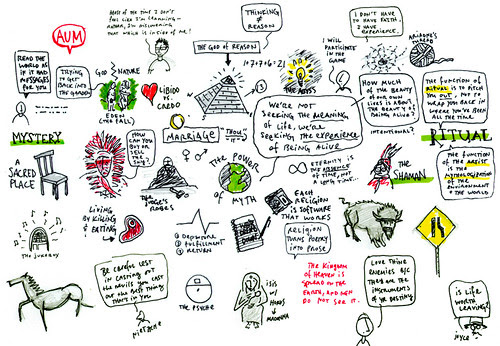 AUM
MOST OF THE TIME I DON'T
FEEL LIKE I'M LEARNING—
RATHER, I'M DISCOVERING
THAT WHICH IS INSIDE OF ME!
THINKING
≠
REASON
THE GOD OF REASON
I DON'T
HAVE TO
HAVE FAITH. I
HAVE
EXPERIENCE.
ARIADNE'S
THREAD
READ THE
WORLD AS
IF IT HAD
MESSAGES
FOR YOU
TRYING
TO GET
BACK INTO
THE GARDEN
GOD
NATURE
EDEN
LIBIDO
VS.
CREDO
THE ABYSS
I WILL
PARTICIPATE
IN THE
GAME
WE'RE NOT
SEEKING THE MEANING
OF LIFE, WE'RE
SEEKING THE EXPERIENCE
OF BEING ALIVE
HOW MUCH
OF THE BEAUTY
OF OUR OWN
LIVES IS ABOUT
THE BEAUTY OF
BEING ALIVE?
INTENTIONAL?
THE FUNCTION OF
RITUAL IS TO PITCH
YOU OUT, NOT TO
WRAP YOU BACK IN
WHERE YOU'VE BEEN
ALL THE TIME
MYSTERY
A
SACRED
PLACE
HOW CAN
YOU BUY
OR
SELL
THE
SKY?
MARRIAGE
"THOU"
"IT"
♀ ♂
THE JUDGE'S
ROBES
THE POWER
OF MYTH
∞
ETERNITY
IS THE ABSENCE
OF TIME, NOT
A LONG TIME...
THE
SHAMAN
RITUAL
THE FUNCTION
OF THE ARTIST IS
THE MYTHOLOGIZATION
OF THE
ENVIRONMENT
& THE WORLD
THE JUKEBOX
LIVING
BY KILLING
& EATING
① DEPARTURE
② FULFILLMENT
③ RETURN
EACH
RELIGION
IS SOFTWARE
THAT WORKS
RELIGION
TURNS POETRY
INTO PROSE
BE CAREFUL LEST
IN CASTING OUT
THE DEVILS YOU CAST
OUT THE BEST THING
THAT'S IN YOU
NIETZSCHE
THE PSYCHE
ISIS
W/
HORUS
&
MADONNA
THE KINGDOM
OF HEAVEN IS
SPREAD ON THE
EARTH, AND MEN
DO NOT SEE IT.
LOVE THINE
ENEMIES B/C
THEY ARE THE
INSTRUMENTS
OF YR DESTINY
IS LIFE
WORTH
LEAVING?